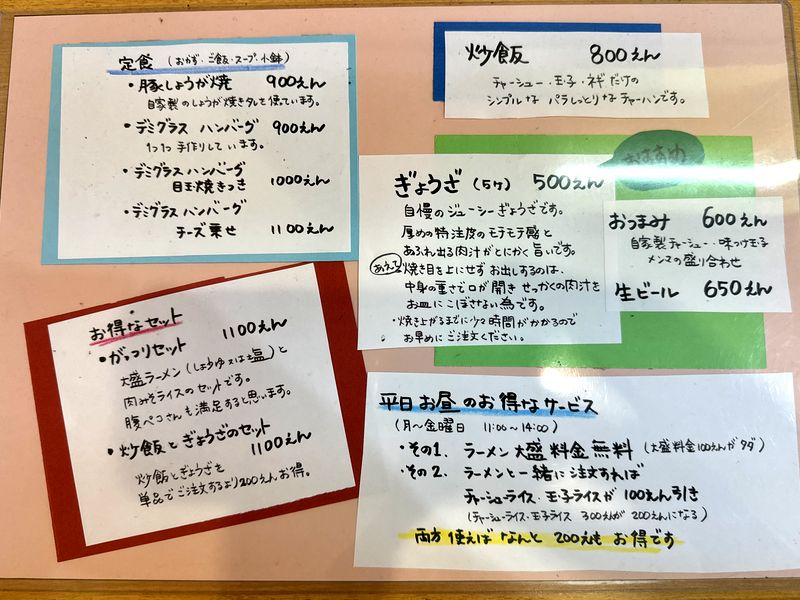 定食 (おかず・ご飯・スープ・小鉢)
・豚しょうが焼 900えん
自家製のしょうが焼きタレを使ています。
・デミグラス ハンバーグ 900えん
1つ1つ 手作りしています。
・デミグラス ハンバーグ
目玉焼きつき 1000えん
・デミグラス ハンバーグ
チーズ乗せ 1100えん
炒飯 800えん
チャーシュー・玉子・ネギだけの
シンプルな パラしっとりなチャーハンです。
おすすめ
ぎょうざ (5ケ) 500えん
自慢のジューシーぎょうざです。
厚めの特注皮のモチモチ感と
あふれ出る肉汁がとにかく旨いです。
あえて 焼き目を上にせず お出しするのは、
中身の重さで口が開き せっかくの肉汁を
お皿にこぼさない為です。
・焼き上がるまでに少々時間がかかるので
お早めにご注文ください。
おつまみ 600えん
自家製チャーシュー・味つけ玉子
メンマの盛り合わせ
生ビール 650えん
お得なセット
・がっつりセット 1100えん
大盛ラーメン (しょうゆ又は塩) と
肉みそライスのセットです。
腹ペコさんも満足すると思います。
・炒飯とぎょうざのセット
1100えん
炒飯とぎょうざを
単品でご注文するより200えんお得。
平日お昼のお得なサービス
(月〜金曜日 11:00〜14:00)
・その1. ラーメン大盛料金無料 (大盛料金100えんがタダ)
・その2. ラーメンと一緒に注文すれば
チャーシューライス・玉子ライスが 100えん引き
(チャーシューライス・玉子ライス 300えんが 200えんになる)
両方 使えば なんと 200えんも お得です